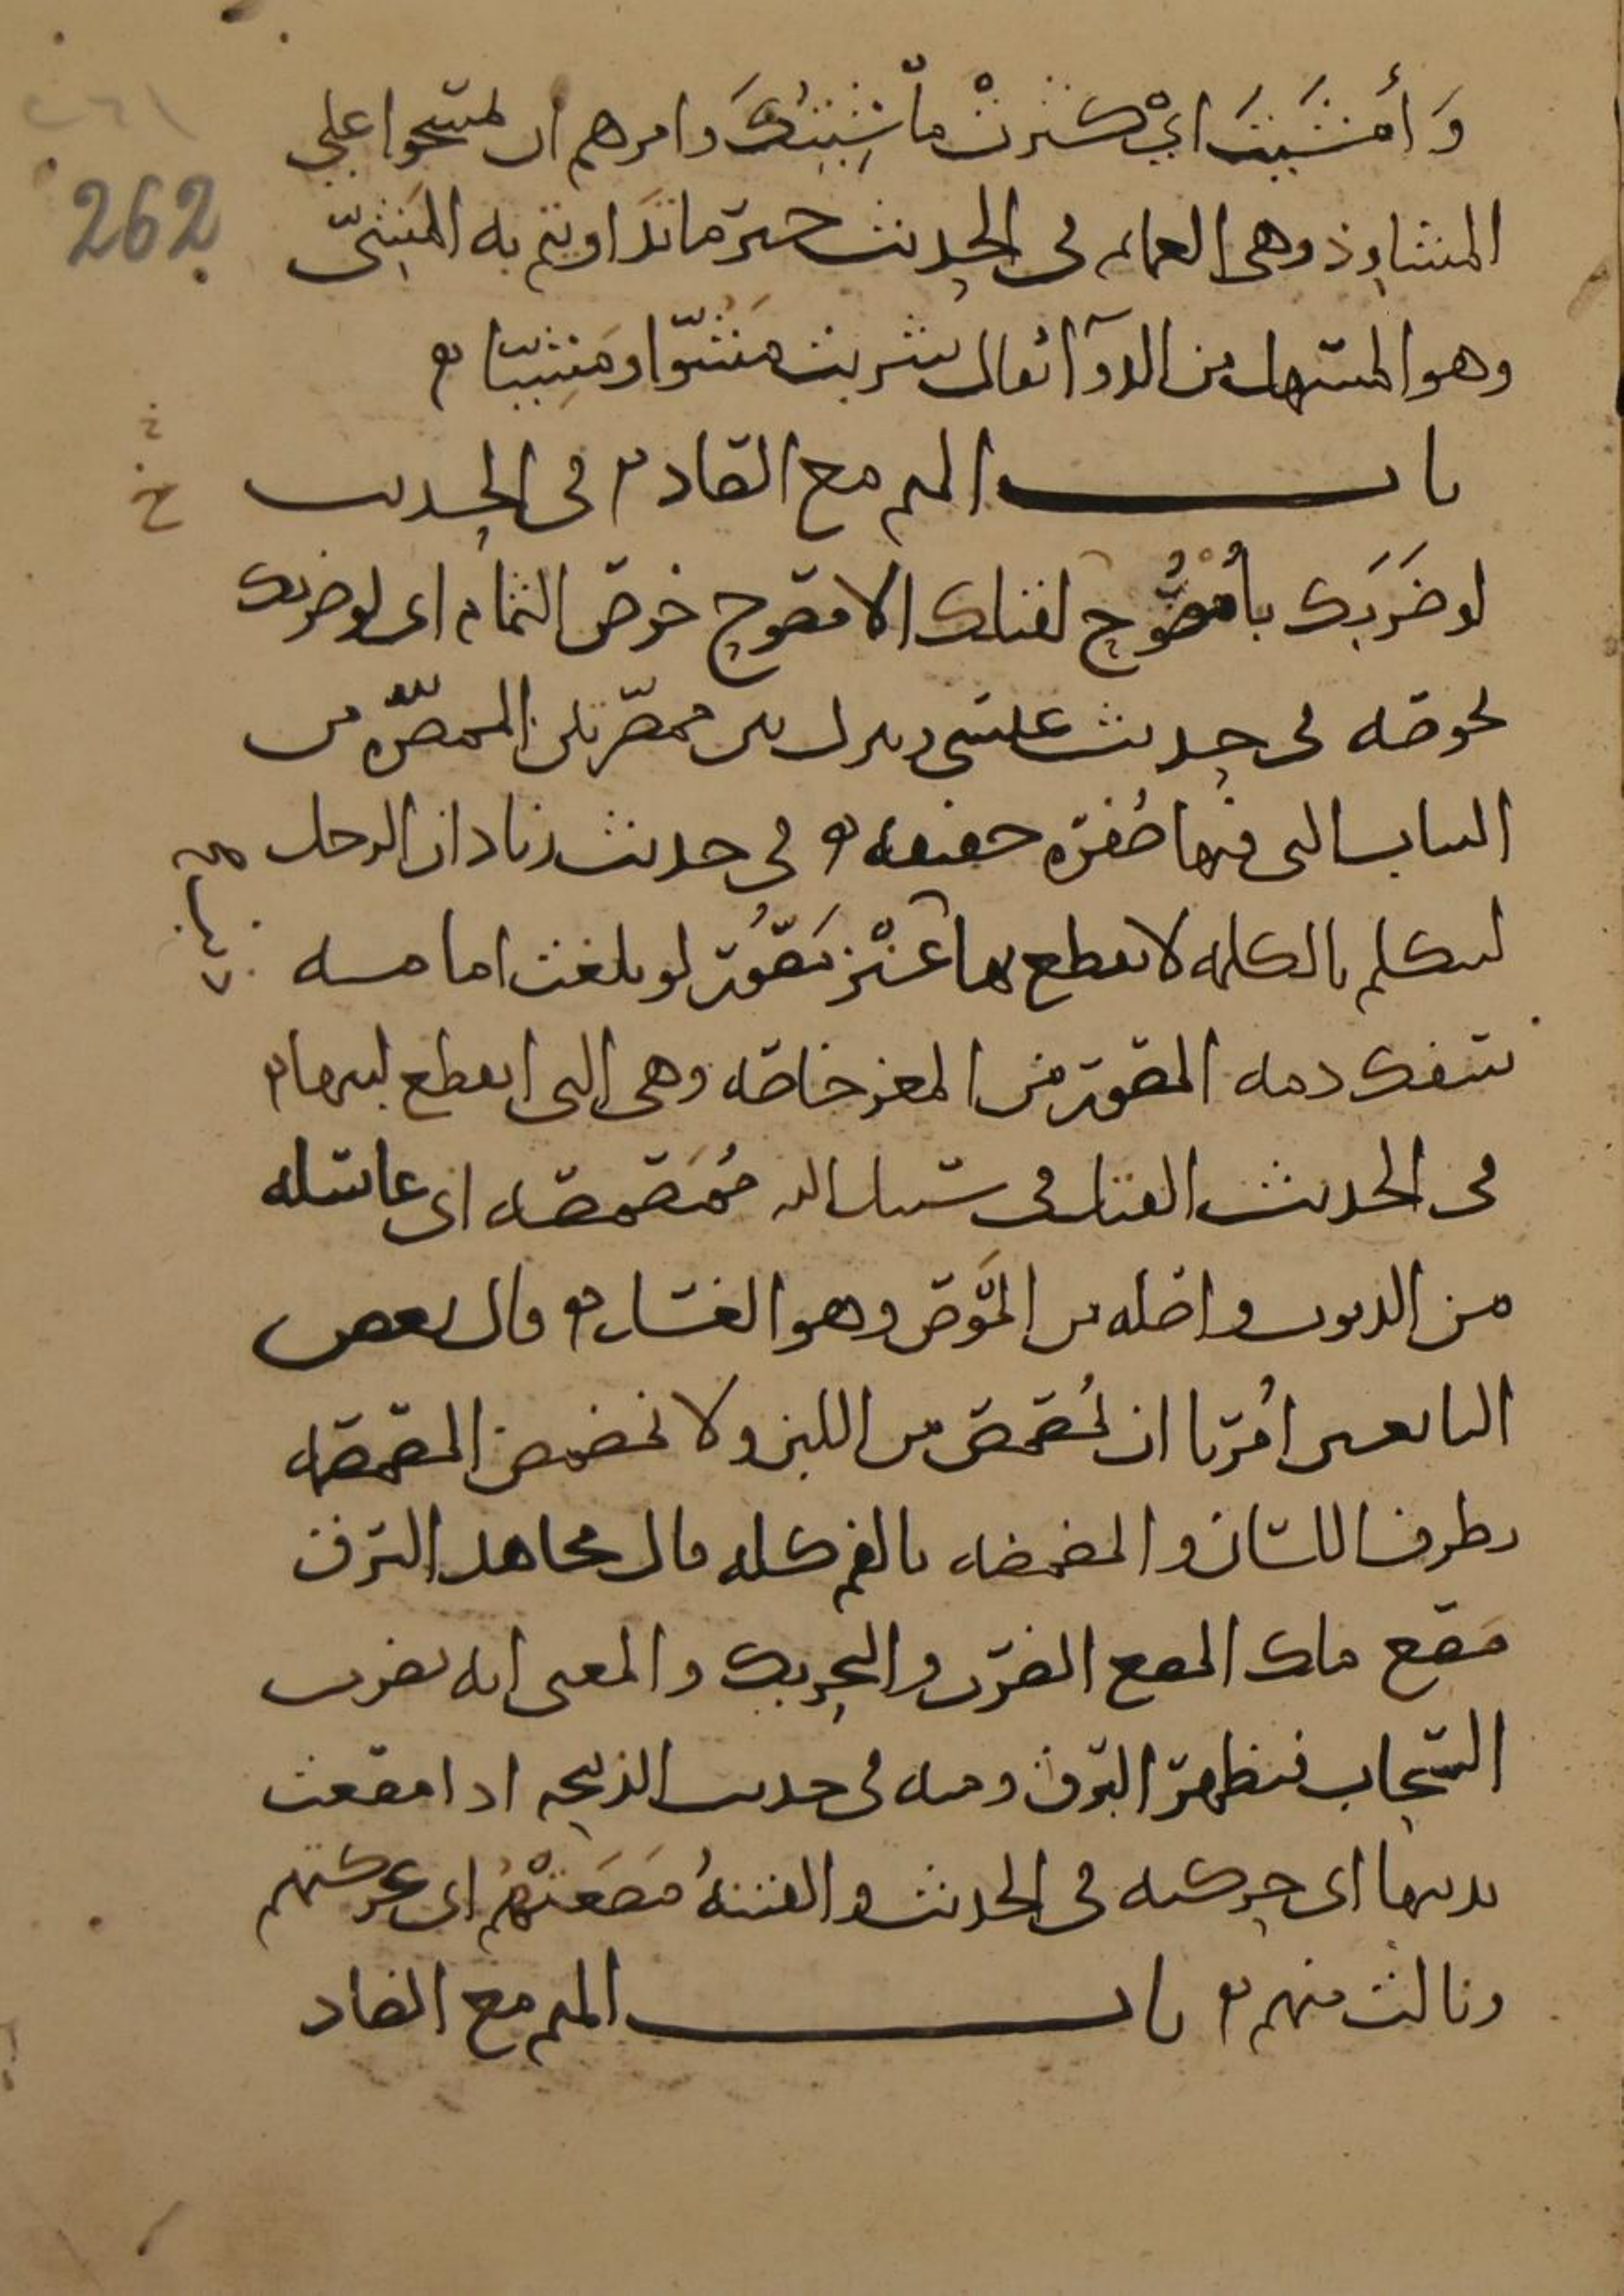 وَأَمْشَيْتَ اي كثرت ماشِيَتُكَ وامرهم ان يمسحوا علي
262
المشاوذ وهي العمائم في الحديث خير ما تداويتم به المَشِيّ
وهو المسهل من الدوآ تقال شربت مَشُوّا ومَشِيّا
باب الميم مع الصاد في الحديث
لو ضَرَبَك بأُمْصُوخ لقتلك الامصوخ خوص الثمام اي لو ضربك
بخوصه في حديث عيسى وينزل بين ممصّرتين الممصّره من
الثياب التي فيها صُفرة خفيفه في حديث زياد ان الرجل
ليتكلم بالكلمه لا يقطع بها عَنْز مَصُور لو بلغت امامه
سفك دمه المصور من المعز خاصه وهي التي انقطع لبنها
في الحديث القتل في سبيل الله مُمَصمِصه اي غاسله
من الذنوب واصله من المَوْص وهو الغسل وقال بعض
التابعين اُمرنا ان نُمصمص من اللبن ولا نمضمض المصمصه
بطرف اللسان والمضمضه بالفم كله قال مجاهد البرق
مَصع ملك المصع الضرب والتحريك والمعنى انه يضرب
السحاب فيظهر البرق ومنه في حديث الذبيحه اذا مصعت
بذنبها اي حركته في الحديث والفتنةُ مَصَعَتْهُم اي عركتهم
ونالت منهم باب الميم مع الضاد